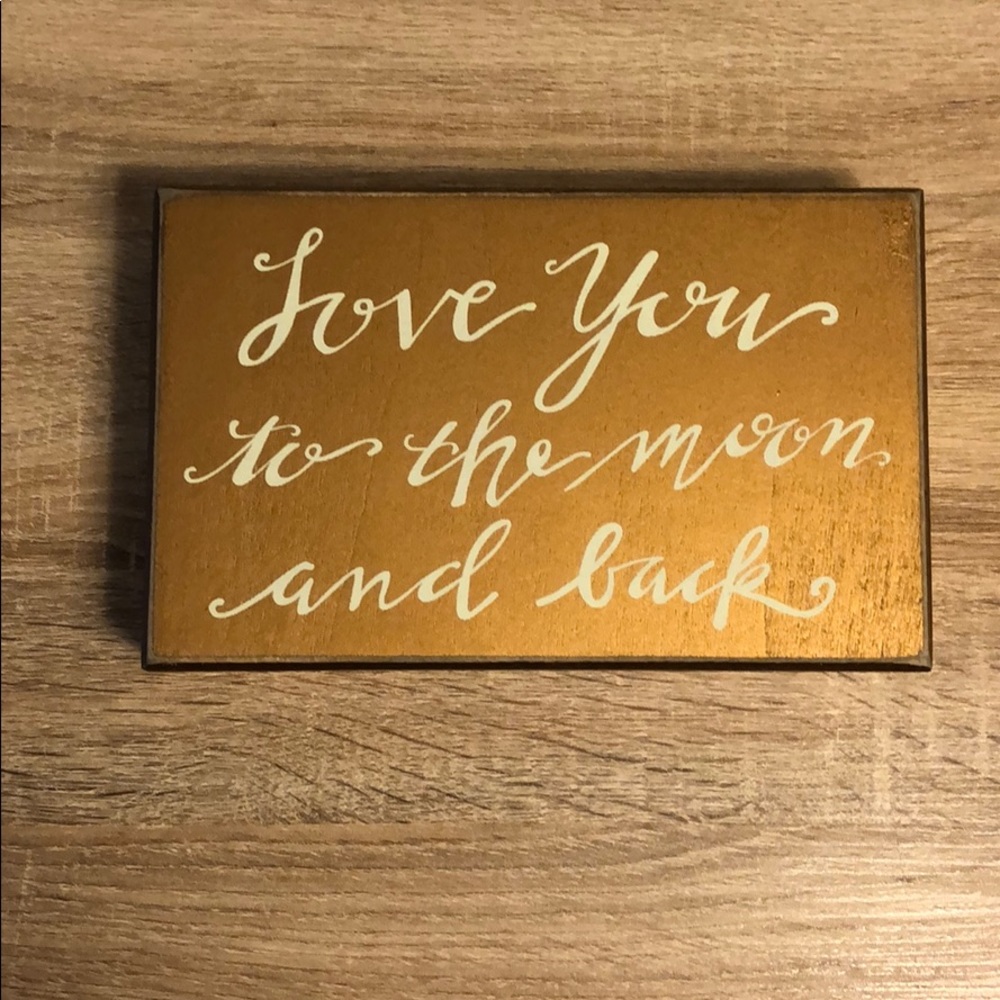 Love You
to the moon
and back